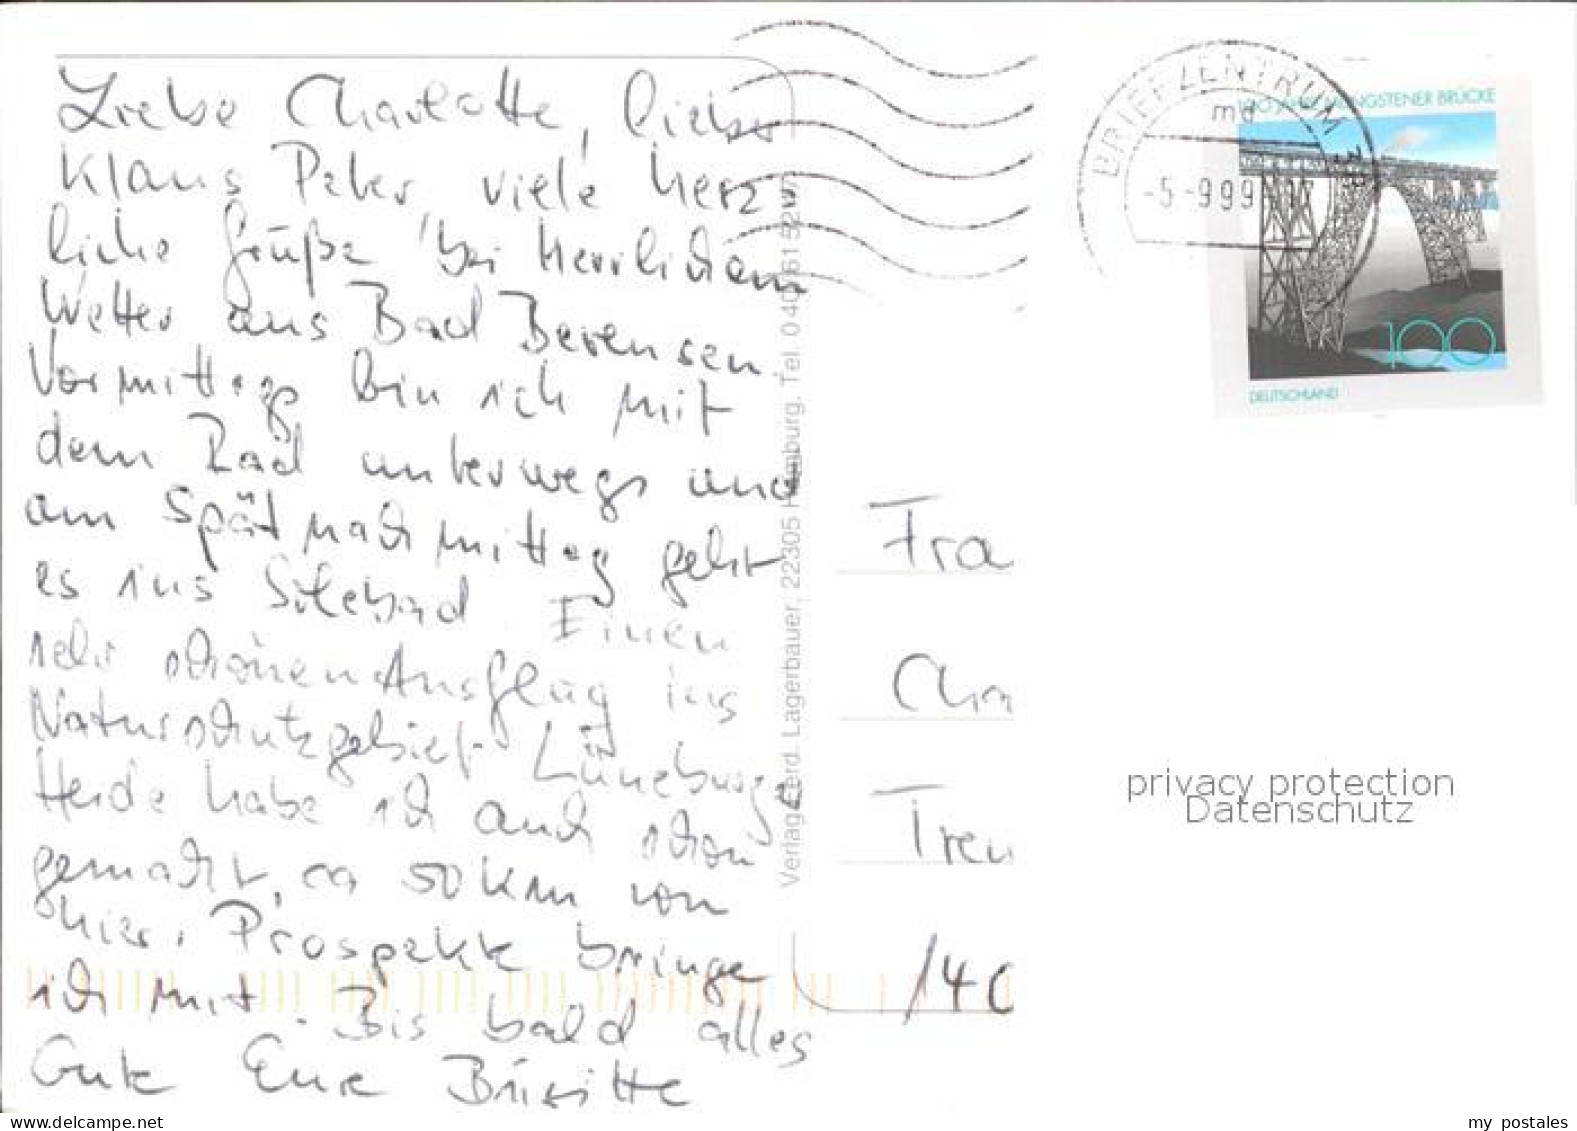 Liebe Charlotte, lieber
Klaus Peter, viele herz-
liche Grüße bei herrlichem
Wetter aus Bad Bevensen.
Vormittags bin ich mit
dem Rad unterwegs und
am Spätnachmittag geht
es ins Solebad. Einen
sehr schönen Ausflug ins
Naturschutzgebiet Lüneburger
Heide habe ich auch schon
gemacht, ca 50 km von
hier. Prospekte bringe
ich mit. Bis bald alles
Gute Eure Brigitte
Verlag Gerd. Lagerbauer, 22305 Hamburg. Tel. 040/
BRIEFZENTRUM
md
-5.-9.99-17
100 JAHRE MÜNGSTENER BRÜCKE
100
DEUTSCHLAND
Fra
Cha
Treu
/40
privacy protection
Datenschutz
www.delcampe.net
my postales